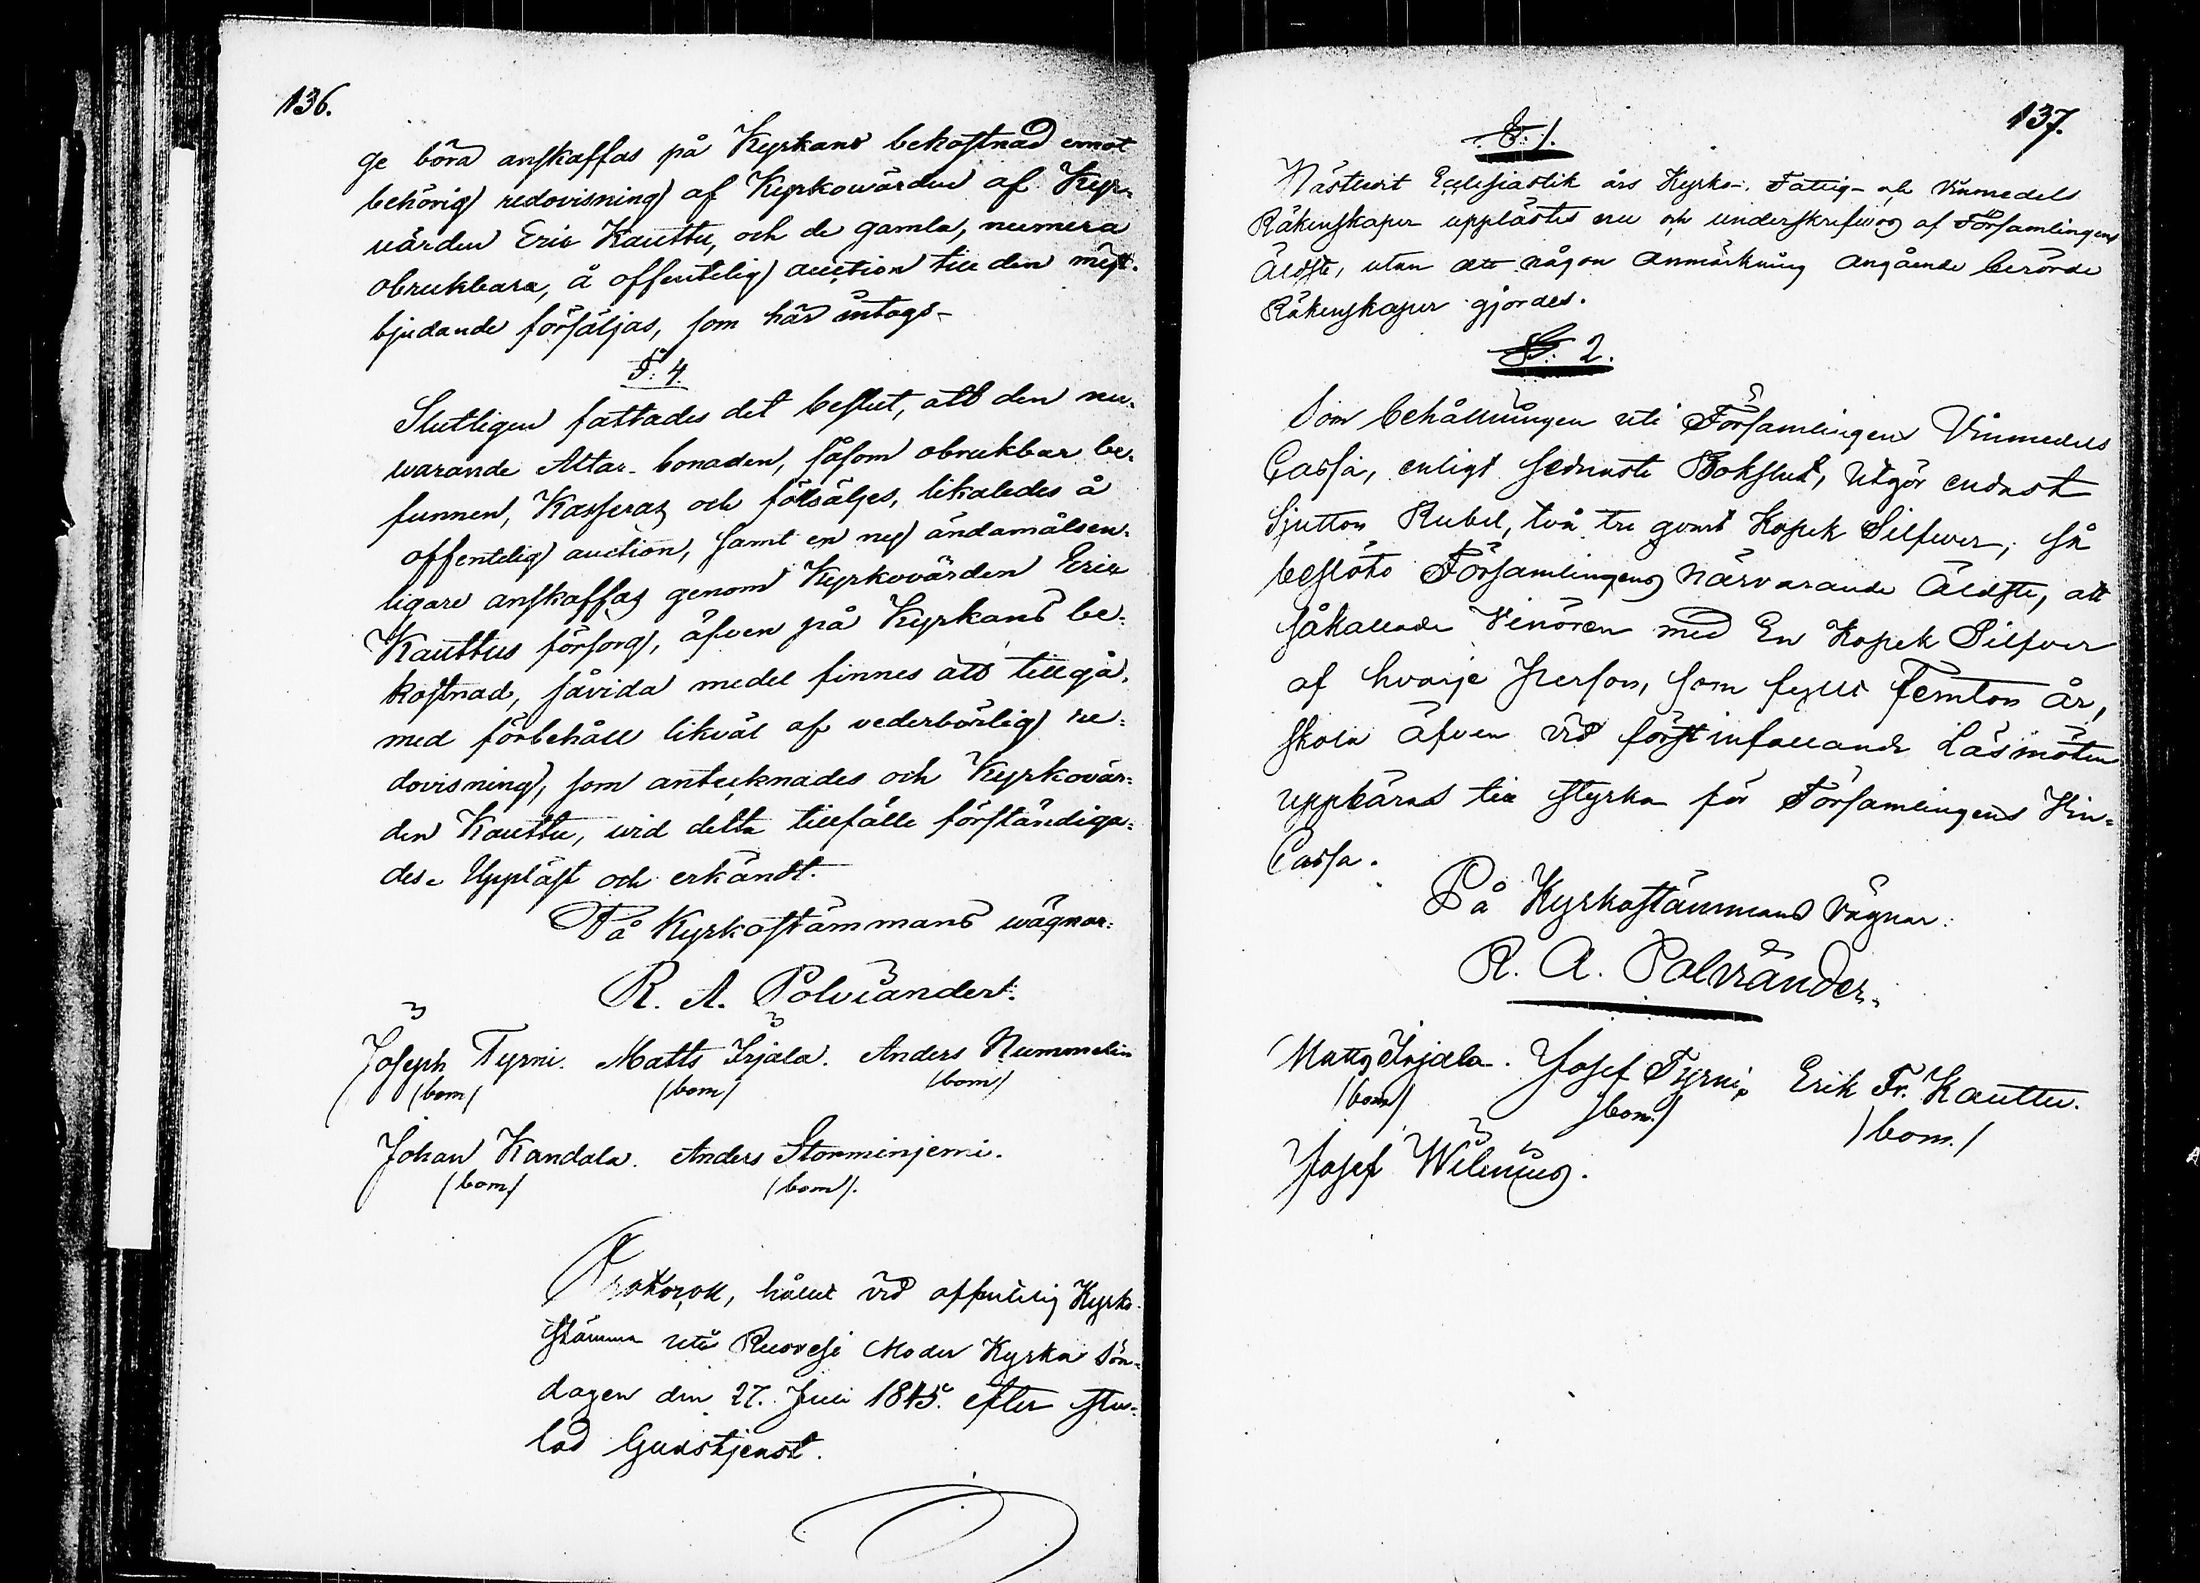 136.
ge böra anskaffas på Kyrkans bekostnad emot
behörig redovisning af Kyrkowärden af Kyr-
värden Eric Kauttu, och de gamla, numera
obrukbara, å offentelig auction till den mest-
bjudande försäljas, som här intogs-
§. 4.
Slutligen fattades det beslut, att den nu-
warande Altar-bonaden, såsom obrukbar be-
funnen, Kasseras och försäljes, likaledes å
offentelig auction, samt en ny ändamålsen-
ligare anskaffas genom Kyrkovärden Eric
Kauttus försorg, äfven på Kyrkans be-
kostnad, såvida medel finnes att tillgå,
med förbehåll likväl af vederbörlig re-
dovisning, som antecknades och Kyrkovär-
den Kauttu, wid detta tillfälle förständiga-
des. Uppläst och erkändt.
På Kyrkostämmans wägnar:
R. A. Polviander.
Joseph Tyrni. Matts Irjala. Anders Nummelin
(bom) (bom) (bom)
Johan Kandala. Anders Storminjemi.
(bom) (bom).
Protocoll, hållet vid offentelig Kyrko-
stämma uti Ruovesi Moder Kyrka Sön-
dagen den 27. Juli 1845. efter slu-
tad Gudstjenst.
137.
§. 1.
Nästvist Ecclesiastik års Kyrko-, Fattig- och Vinmedels
Räkenskaper upplästes nu och underskrefwos af Församlingens
Äldste, utan att någon anmärkning angående berörde
Räkenskaper gjordes.
§. 2.
Som behållningen uti Församlingens Vinmedels
Cassa, enligt sednaste Bokslut, utgör endast
Sjutton Rubel, två tre qvart Kopek Silfwer, så
beslöto Församlingens närvarande Äldste, att
såkallade Vinören med En Kopek Silfver
af hvarje Person, som fyllt femton år,
skola äfven vid först infallande Läsmöten
uppbäras till styrka för Församlingens Vin-
Cassa.
På Kyrkostämmans Vägnar:
R. A. Polviander.
Matts Irjala. Josef Tyrni, Erik Fr. Kauttu.
(bom) (bom.) (bom.)
Josef Wilenius.